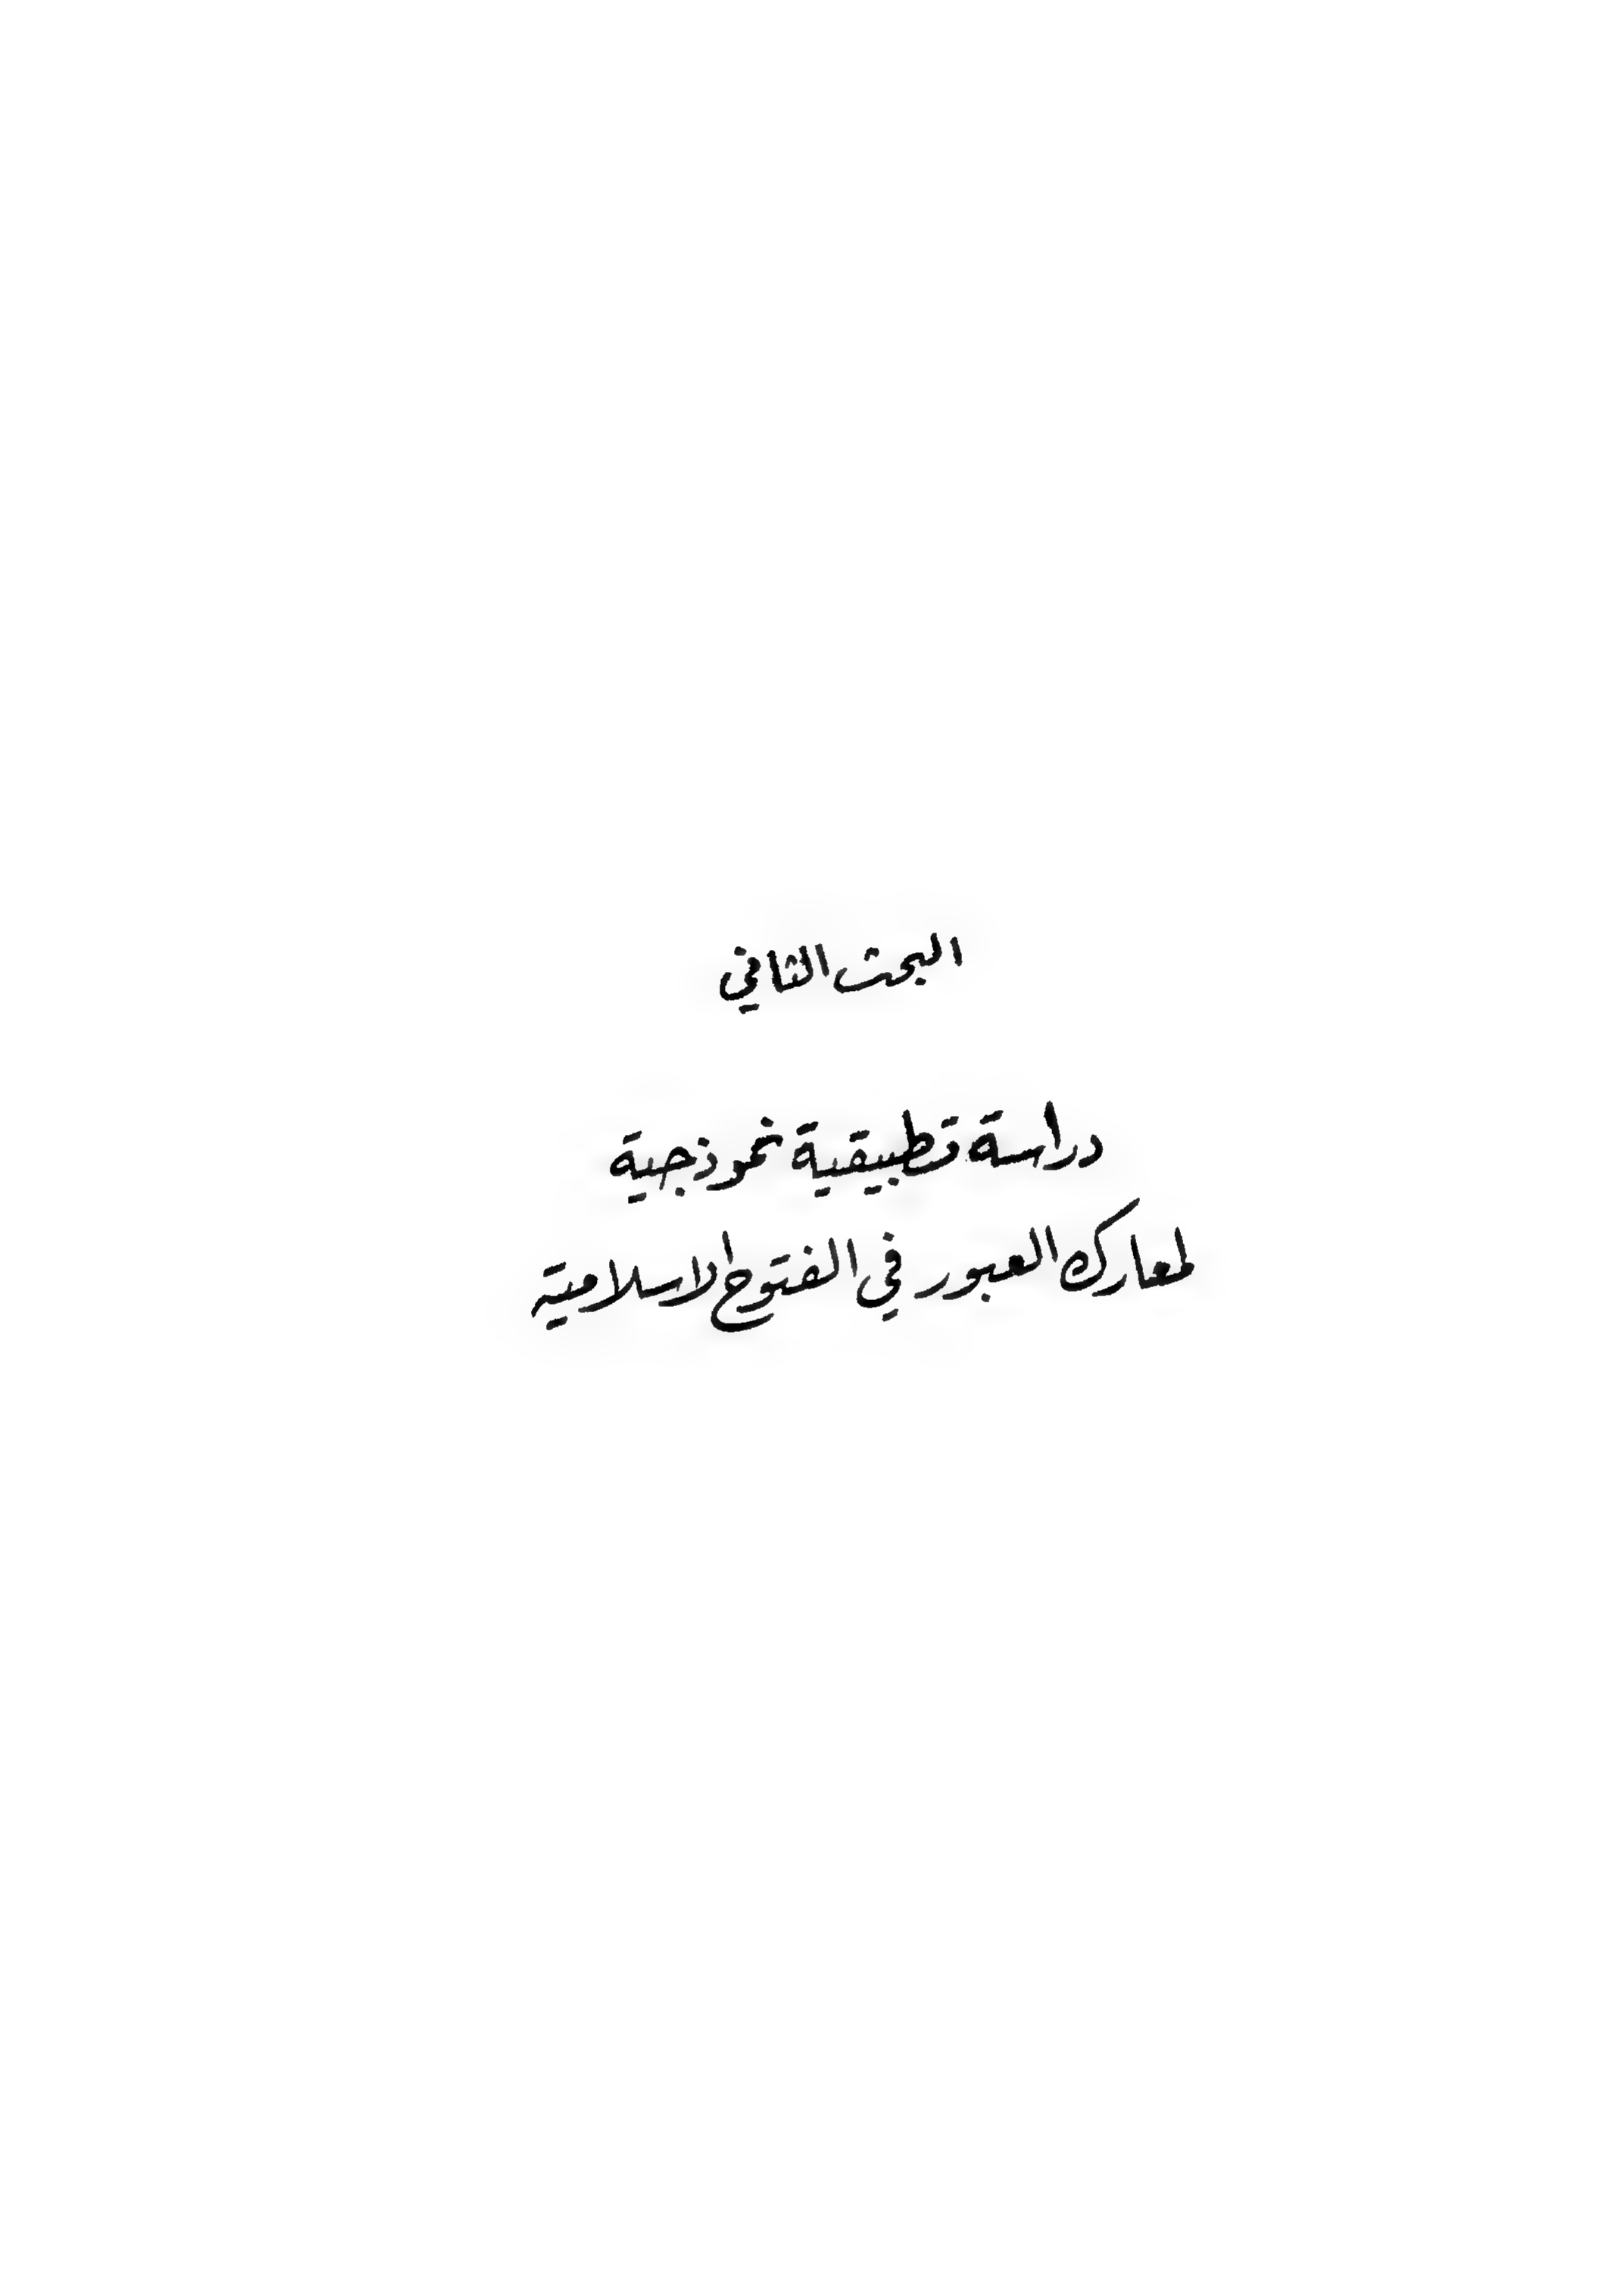 البحث الثاني
دراسة تطبيقية نموذجية
لمعارك العبور في الفتوح الاسلامية